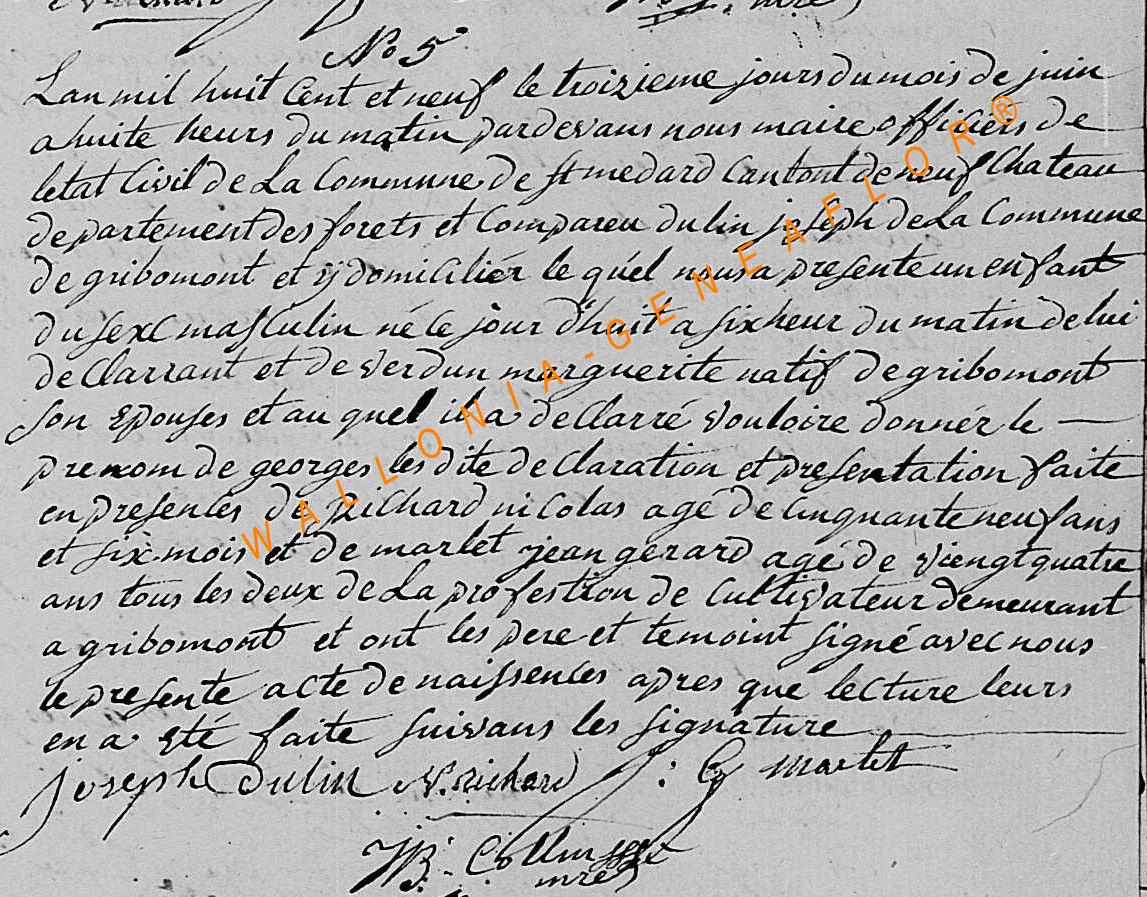 No 5
Lan mil huit Cent et neuf le troizieme jours du mois de juin
a huite heurs du matin pardevans nous maire officiers de
letat Civil de La Commune de st medard Cantont de neuf Chateau
departement des forets et Compareu dulin joseph de La Commune
de gribomont et ÿ domicilier le quel nous a presente un enfant
du sexe masculin né Ce jour d'huit a six heur du matin de lui
de Clarrant et de verdun marguerite natif de gribomont
son epouses et au quel il a de Clarré vouloire donnér le —
prenom de georges les dite de Claration et presentation faite
en presences de Richard nicolas age de Cinquante neuf ans
et six mois et de marlet jean gerard agé de viengt quatre
ans tous les deux de La profestion de Cultivateur demeurant
a gribomont et ont les pere et temoint signé avec nous
le presente acte de naissences apres que lecture leurs
en a eté faite suivans les signature
joseph Dulin N. Richard : Cg marlet
JB. Collin
mre
WALLONIA-GENEAFLOR®